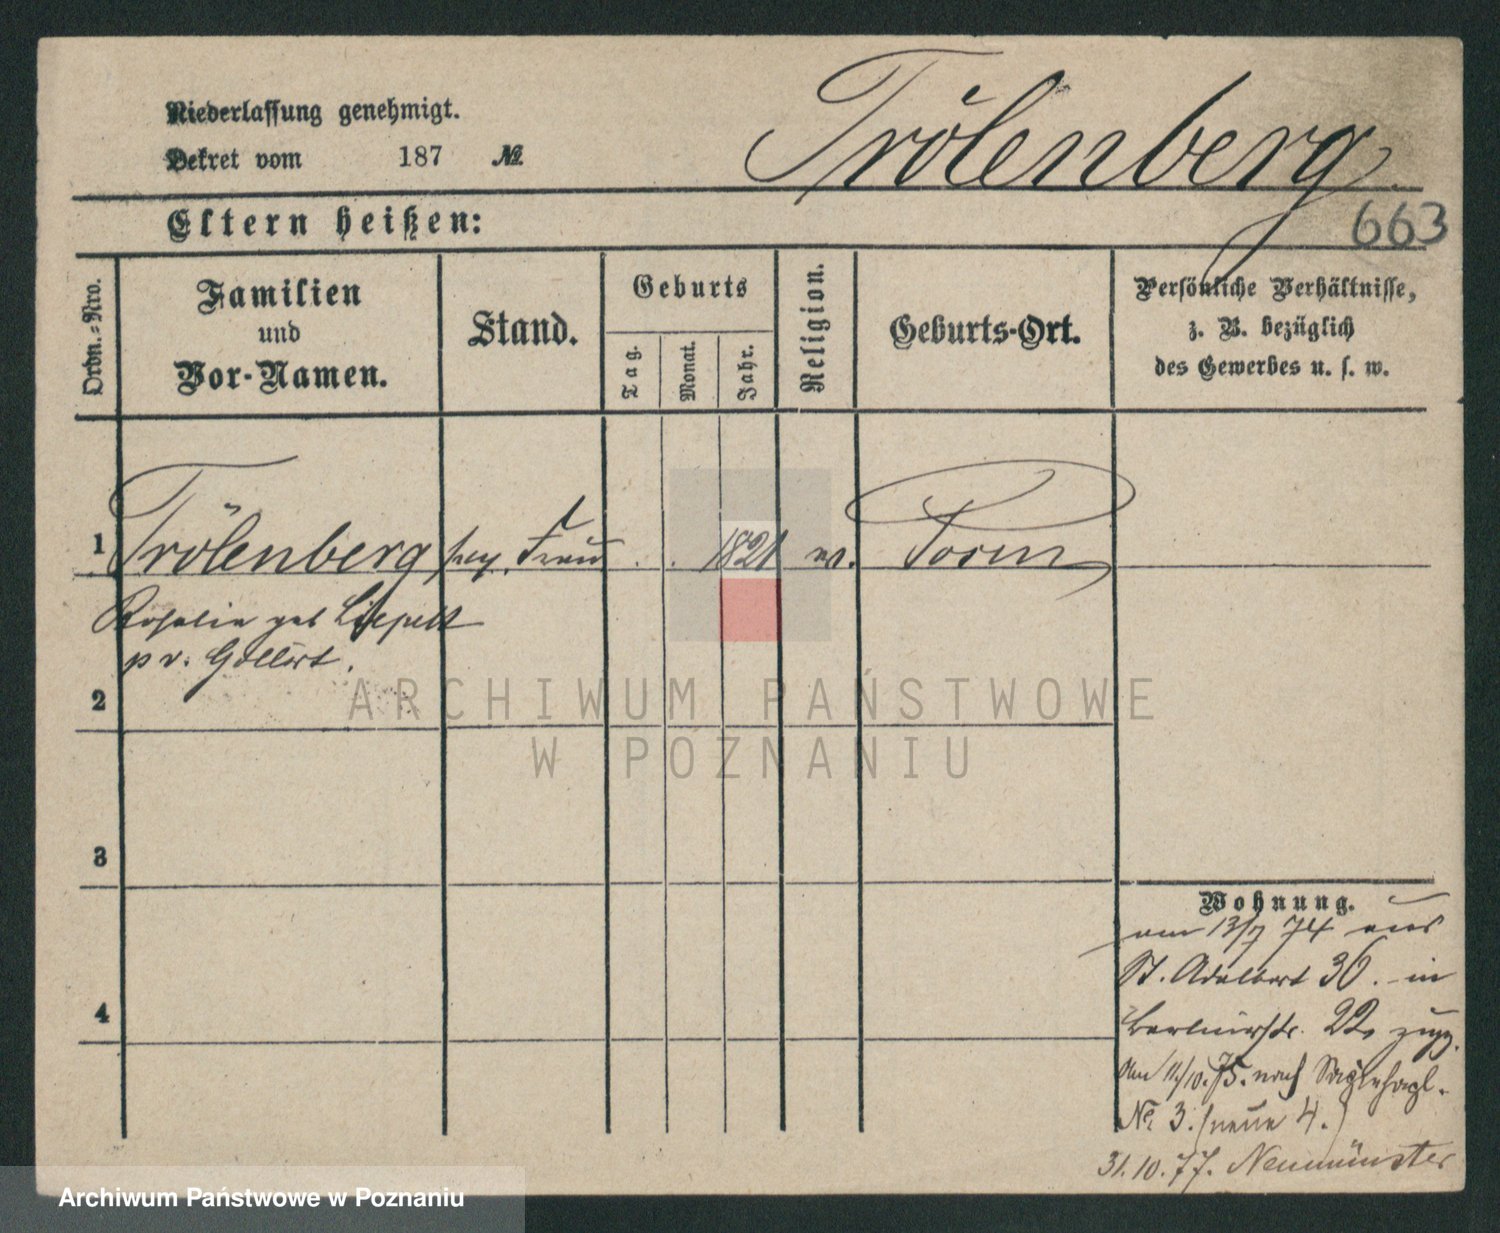 Niederlassung genehmigt.
Dekret vom 187 №
Trölenberg.
663
Eltern heißen:
Ordn.=Nro.
Familien
und
Vor-Namen.
Stand.
Geburts
Tag.
Monat.
Jahr.
Religion.
Geburts-Ort.
Persönliche Verhältnisse,
z. B. bezüglich
des Gewerbes u. s. w.
1 Trölenberg Frau 1821 Posen
Rosalie geb
2
3
4
ARCHIWUM PAŃSTWOWE
W POZNANIU
Wohnung.
am 13/7 74 aus
St. Adalbert 36. in
22, zugz.
am 11/10. 75. nach
No 3. (neue 4.)
31.10.77. Neumünster
Archiwum Państwowe w Poznaniu